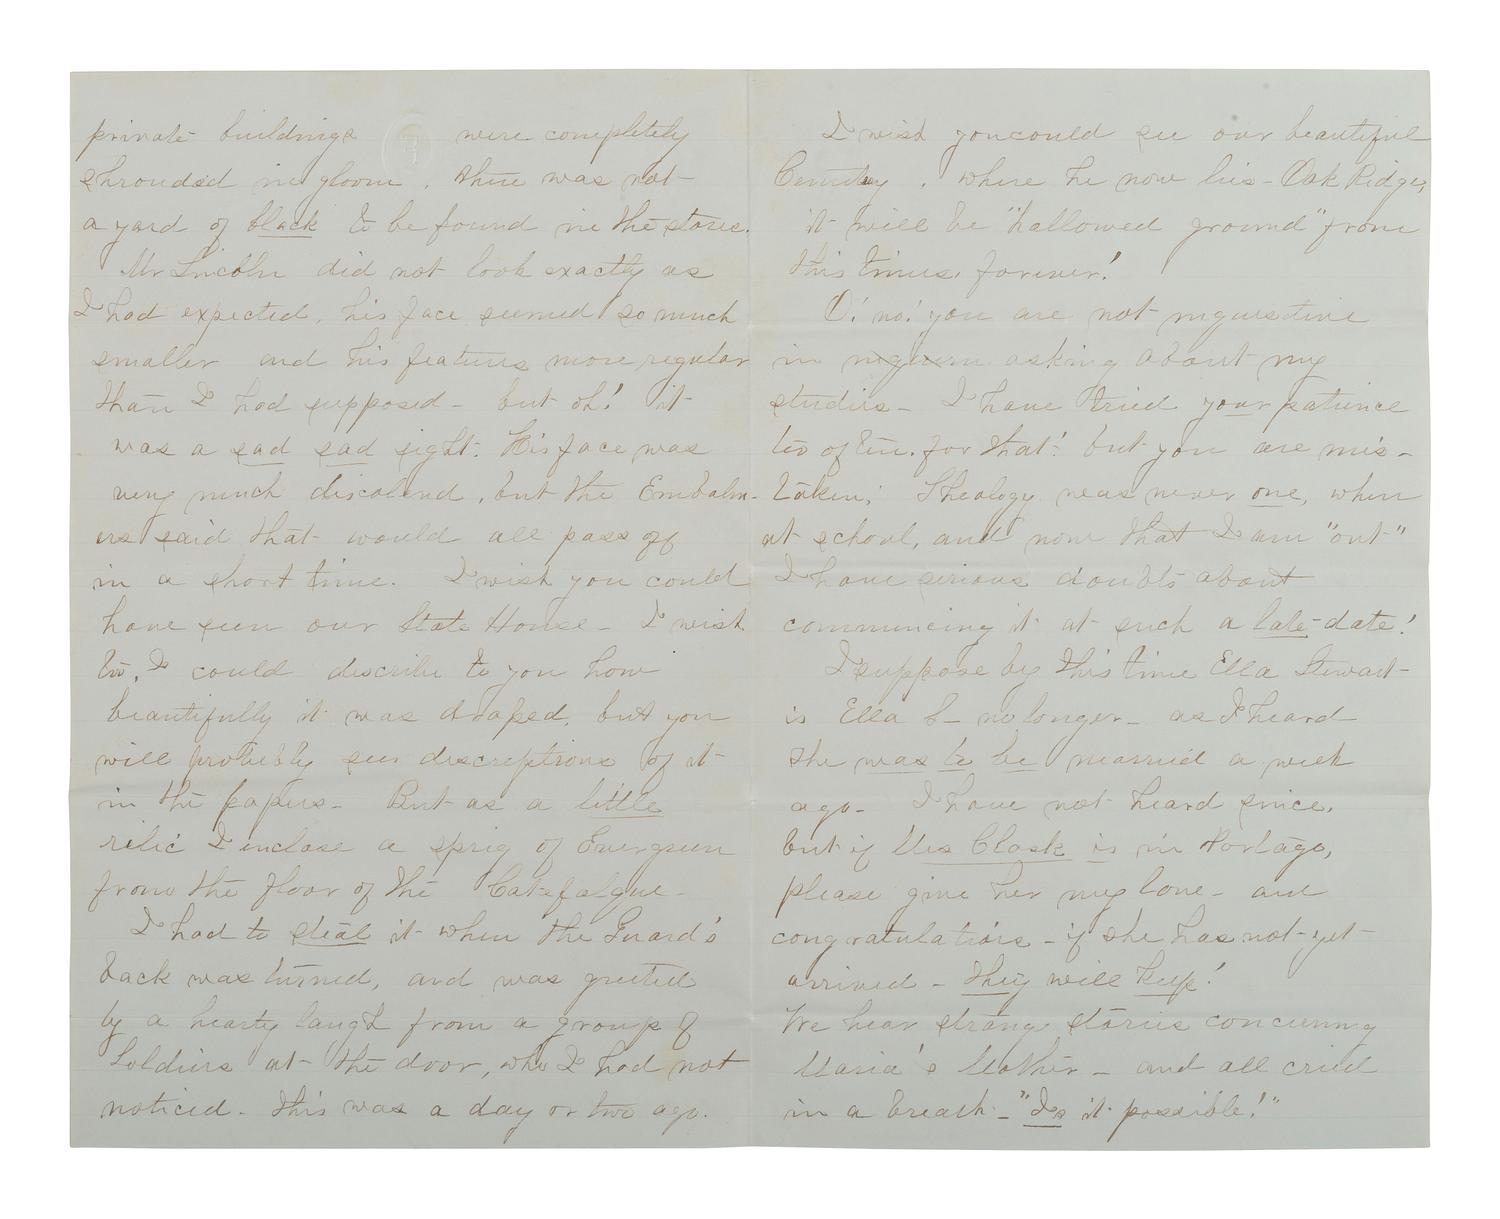 private buildings were completely
shrouded in gloom. there was not
a yard of black to be found in the stores.
Mr Lincoln did not look exactly as
I had expected, his face seemed so much
smaller and his features more regular
than I had supposed - but oh! it
was a sad sad sight. His face was
very much discolored, but the Embalm-
ers said that would all pass off
in a short time. I wish you could
have seen our State House - I wish
too, I could describe to you how
beautifully it was draped, but you
will probably see discriptions of it
in the papers - But as a little
relic I enclose a sprig of Evergreen
from the floor of the Catefalque -
I had to steal it when the Guard's
back was turned, and was greeted
by a hearty laugh from a group of
Soldiers at the door, who I had not
noticed - This was a day or two ago.
I wish you could see our beautiful
Cemetery, where he now lies - Oak Ridge,
it will be "hallowed ground" from
this time, forever!
O! no! you are not inquisitive
in asking about my
studies - I have tried your patience
too often for that! but you are mis-
taken; Theology was never one, when
at school, and now that I am "out"
I have serious doubts about
commencing it at such a late-date!
I suppose by this time Ella Stewart
is Ella S - no longer - as I heard
she was to be married a week
ago - I have not heard since,
but if Mrs Clark is in Portage,
please give her my love - and
congratulations - if she has not yet
arrived - they will keep!
We hear strange stories concerning
Maria's Mother - and all cried
in a breath - "Is it possible!"